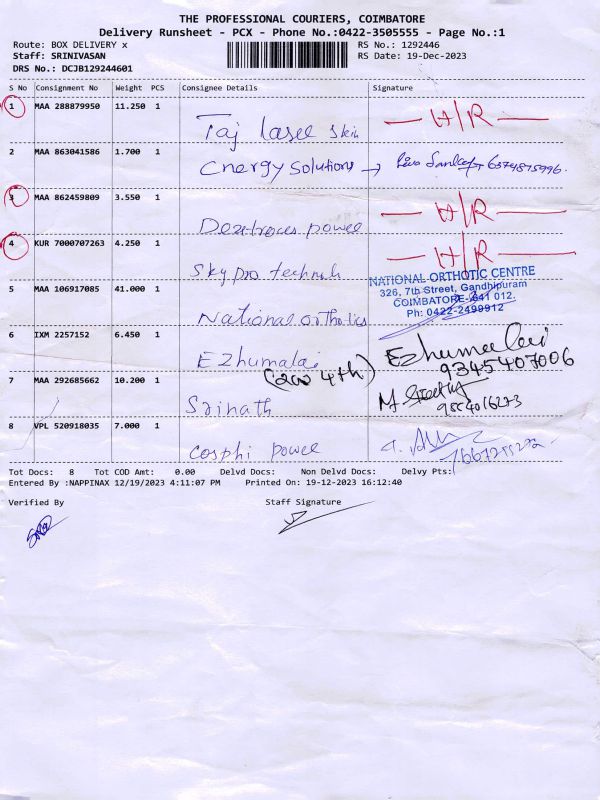 THE PROFESSIONAL COURIERS, COIMBATORE
Delivery Runsheet - PCX - Phone No.:0422-3505555 - Page No.:1
Route: BOX DELIVERY x RS No.: 1292446
Staff: SRINIVASAN RS Date: 19-Dec-2023
DRS No.: DCJB129244601
S No Consignment No Weight PCS Consignee Details Signature
1 MAA 288879950 11.250 1 Taj laser skin H/R
2 MAA 863041586 1.700 1 Energy Solutions →
3 MAA 862459809 3.550 1 power H/R
4 KUR 7000707263 4.250 1 Skypro H/R
5 MAA 106917085 41.000 1 National orthotics
NATIONAL ORTHOTIC CENTRE
326, 7th Street, Gandhipuram
COIMBATORE-641 012.
Ph: 0422-2499912
6 IXM 2257152 6.450 1 Ezhumalai Ezhumalai
9345407006
7 MAA 292685662 10.200 1 Srinath
8 VPL 520918035 7.000 1 power
Tot Docs: 8 Tot COD Amt: 0.00 Delvd Docs: Non Delvd Docs: Delvy Pts:
Entered By :NAPPINAX 12/19/2023 4:11:07 PM Printed On: 19-12-2023 16:12:40
Verified By Staff Signature